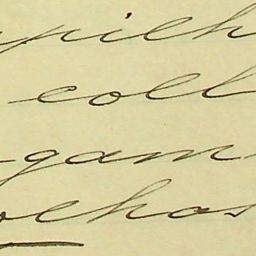 pilh
coll
gam
olhas